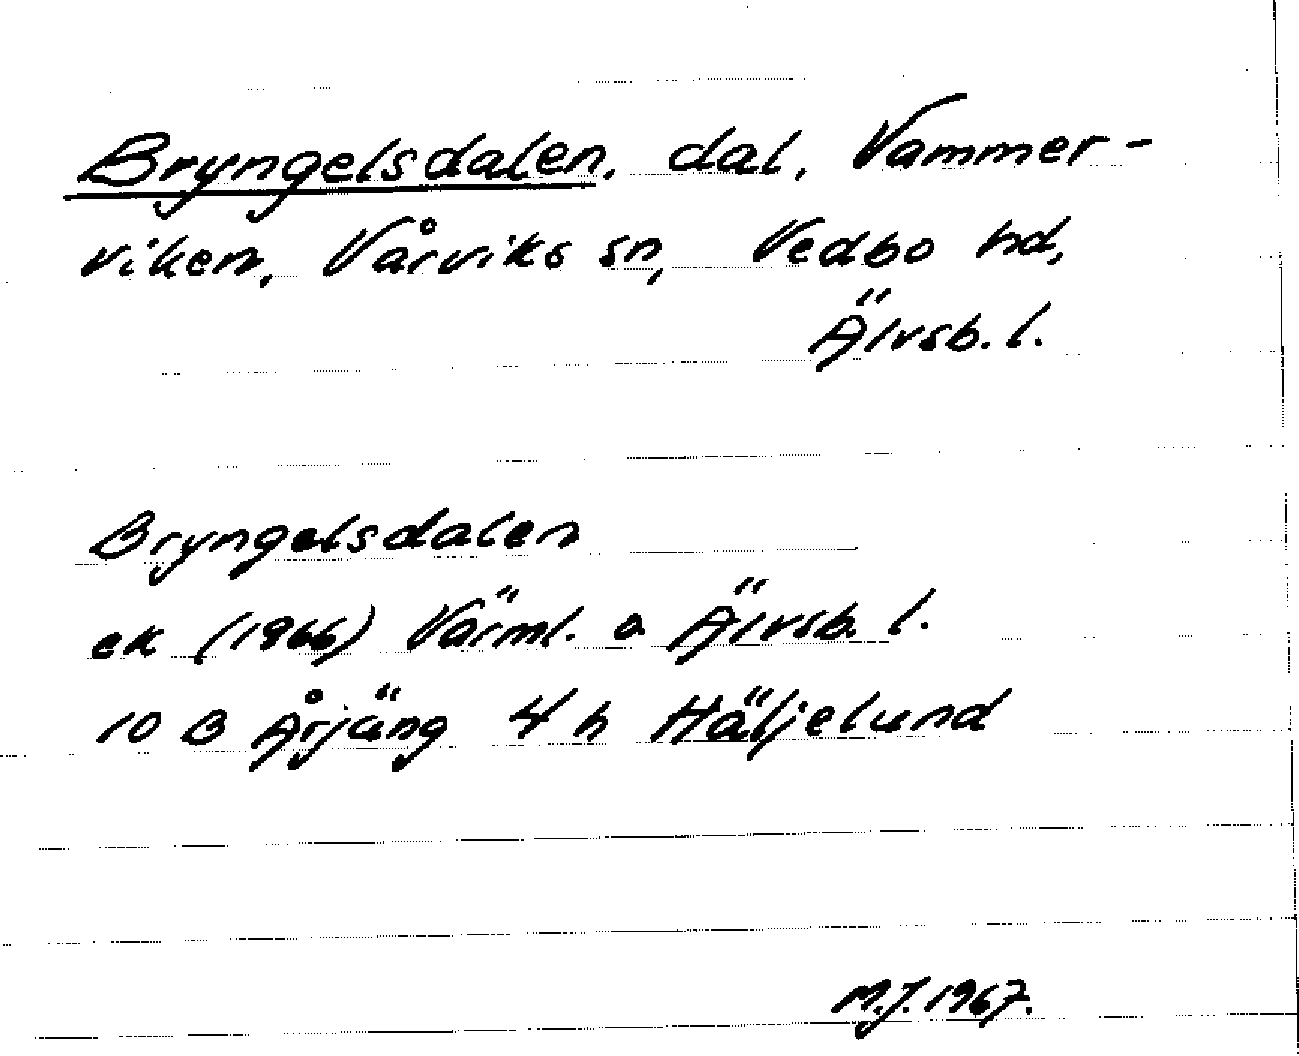 Bryngelsdalen, dal, Vammer-
viken, Vårviks sn, Vedbo hd,
Älvsb. l.
Bryngelsdalen
ek (1966) Värml. o. Älvsb. l.
10 B Årjäng 4 h Häljelund
M.J. 1967.